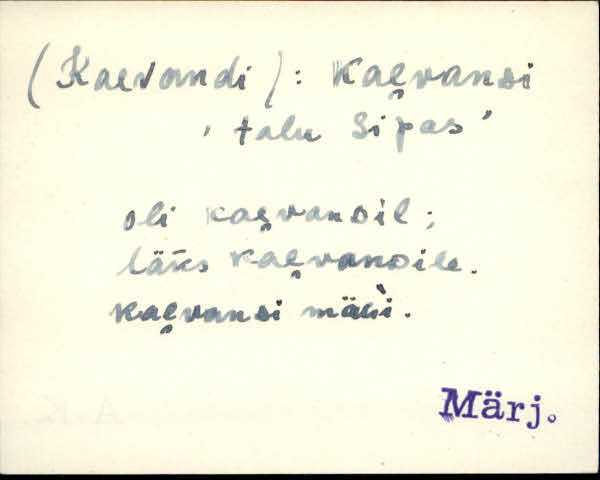 (Kaevandi): kae̯vanᴅi
'talu Sipas'
oli kae̯vanᴅil;
läks kae̯vanᴅile.
kae̯vanᴅi
Märj.